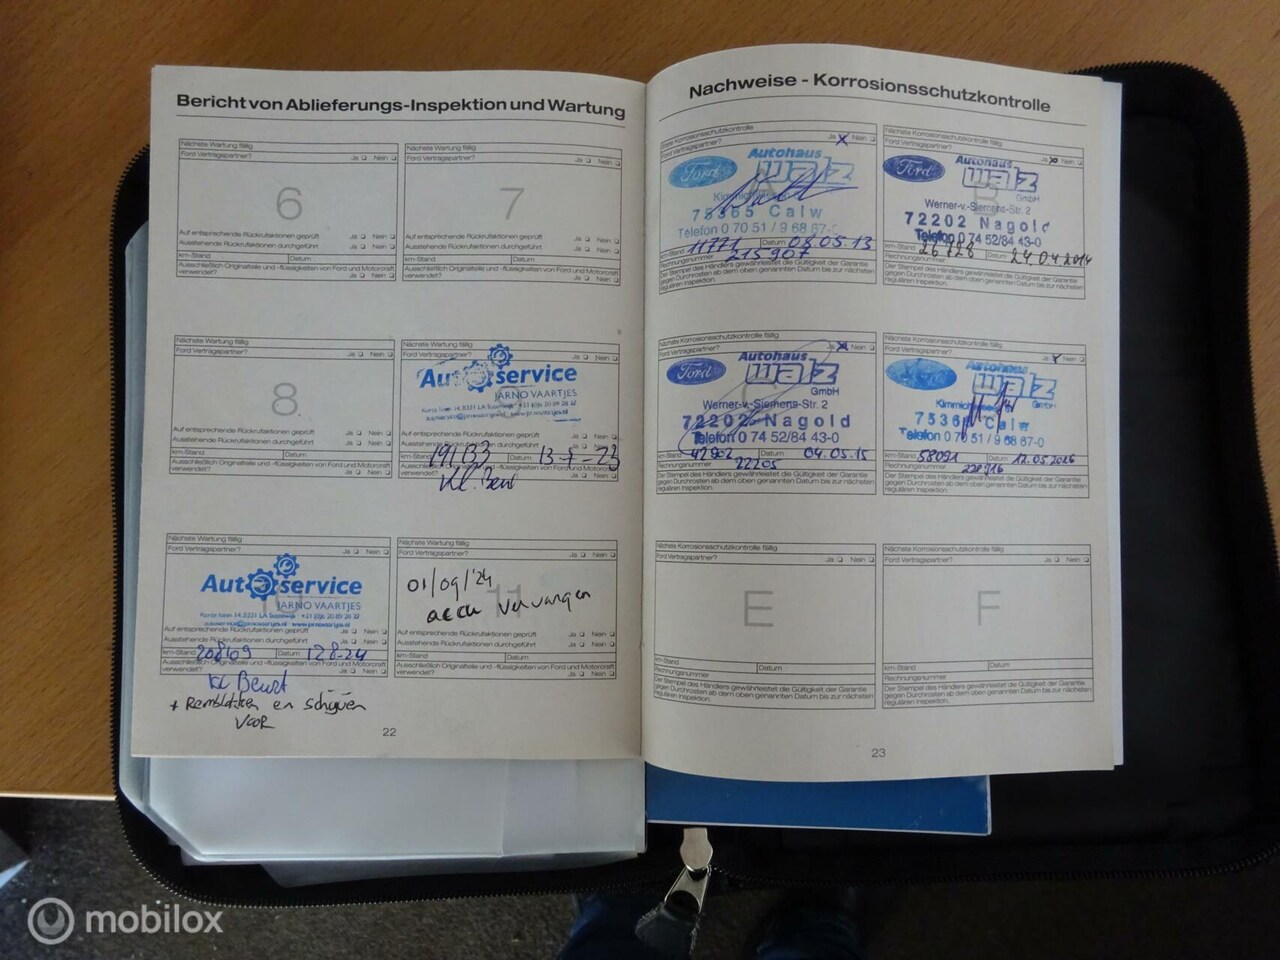 Bericht von Ablieferungs-Inspektion und Wartung
Nächste Wartung fällig
Ford Vertragspartner? Ja Nein
6
Auf entsprechende Rückrufaktionen geprüft Ja Nein
Ausstehende Rückrufaktionen durchgeführt Ja Nein
km-Stand Datum
Ausschließlich Originalteile und -flüssigkeiten von Ford und Motorcraft
verwendet? Ja Nein
Nächste Wartung fällig
Ford Vertragspartner? Ja Nein
7
Auf entsprechende Rückrufaktionen geprüft Ja Nein
Ausstehende Rückrufaktionen durchgeführt Ja Nein
km-Stand Datum
Ausschließlich Originalteile und -flüssigkeiten von Ford und Motorcraft
verwendet? Ja Nein
Nächste Wartung fällig
Ford Vertragspartner? Ja Nein
8
Auf entsprechende Rückrufaktionen geprüft Ja Nein
Ausstehende Rückrufaktionen durchgeführt Ja Nein
km-Stand Datum
Ausschließlich Originalteile und -flüssigkeiten von Ford und Motorcraft
verwendet? Ja Nein
Nächste Wartung fällig
Ford Vertragspartner? Ja Nein
9
Autoservice
JARNO VAARTJES
Auf entsprechende Rückrufaktionen geprüft Ja Nein
Ausstehende Rückrufaktionen durchgeführt Ja Nein
km-Stand 191133 Datum
Ausschließlich Originalteile und -flüssigkeiten von Ford und Motorcraft
verwendet? Ja Nein
Kl. Beurt
Nächste Wartung fällig
Ford Vertragspartner? Ja Nein
10
Autoservice
JARNO VAARTJES
Auf entsprechende Rückrufaktionen geprüft Ja Nein
Ausstehende Rückrufaktionen durchgeführt Ja Nein
km-Stand 208109 Datum 12-8-24
Ausschließlich Originalteile und -flüssigkeiten von Ford und Motorcraft
verwendet? Ja Nein
Kl Beurt
+ Remblokken en schijven
voor
Nächste Wartung fällig
Ford Vertragspartner? Ja Nein
11
01/09/'24
accu vervangen
Auf entsprechende Rückrufaktionen geprüft Ja Nein
Ausstehende Rückrufaktionen durchgeführt Ja Nein
km-Stand Datum
Ausschließlich Originalteile und -flüssigkeiten von Ford und Motorcraft
verwendet? Ja Nein
22
Nachweise - Korrosionsschutzkontrolle
Nächste Korrosionsschutzkontrolle
Ford Vertragspartner? Ja Nein
Ford Autohaus
walz
75365 Calw
Telefon 0 70 51 / 9 68 67-0
km-Stand 11771 Datum 08.05.13
Rechnungsnummer 215907
Der Stempel des Händlers gewährleistet die Gültigkeit der Garantie
gegen Durchrosten ab dem oben genannten Datum bis zur nächsten
regulären Inspektion.
Nächste Korrosionsschutzkontrolle fällig
Ford Vertragspartner? Ja Nein
Ford Autohaus
walz
GmbH
Werner-v.-Siemens-Str. 2
72202 Nagold
Telefon 0 74 52/84 43-0
km-Stand 26728 Datum 24.04.2014
Rechnungsnummer
Der Stempel des Händlers gewährleistet die Gültigkeit der Garantie
gegen Durchrosten ab dem oben genannten Datum bis zur nächsten
regulären Inspektion.
Nächste Korrosionsschutzkontrolle fällig
Ford Vertragspartner? Ja Nein
Ford Autohaus
walz
GmbH
Werner-v.-Siemens-Str. 2
72202 Nagold
Telefon 0 74 52/84 43-0
km-Stand 42902 Datum 04.05.15
Rechnungsnummer 22205
Der Stempel des Händlers gewährleistet die Gültigkeit der Garantie
gegen Durchrosten ab dem oben genannten Datum bis zur nächsten
regulären Inspektion.
Nächste Korrosionsschutzkontrolle fällig
Ford Vertragspartner? Ja Nein
Autohaus
walz
GmbH
Calw
Telefon 0 70 51 / 9 68 67-0
km-Stand 58091 Datum
Rechnungsnummer
Der Stempel des Händlers gewährleistet die Gültigkeit der Garantie
gegen Durchrosten ab dem oben genannten Datum bis zur nächsten
regulären Inspektion.
Nächste Korrosionsschutzkontrolle fällig
Ford Vertragspartner? Ja Nein
E
km-Stand Datum
Rechnungsnummer
Der Stempel des Händlers gewährleistet die Gültigkeit der Garantie
gegen Durchrosten ab dem oben genannten Datum bis zur nächsten
regulären Inspektion.
Nächste Korrosionsschutzkontrolle fällig
Ford Vertragspartner? Ja Nein
F
km-Stand Datum
Rechnungsnummer
Der Stempel des Händlers gewährleistet die Gültigkeit der Garantie
gegen Durchrosten ab dem oben genannten Datum bis zur nächsten
regulären Inspektion.
23
mobilox